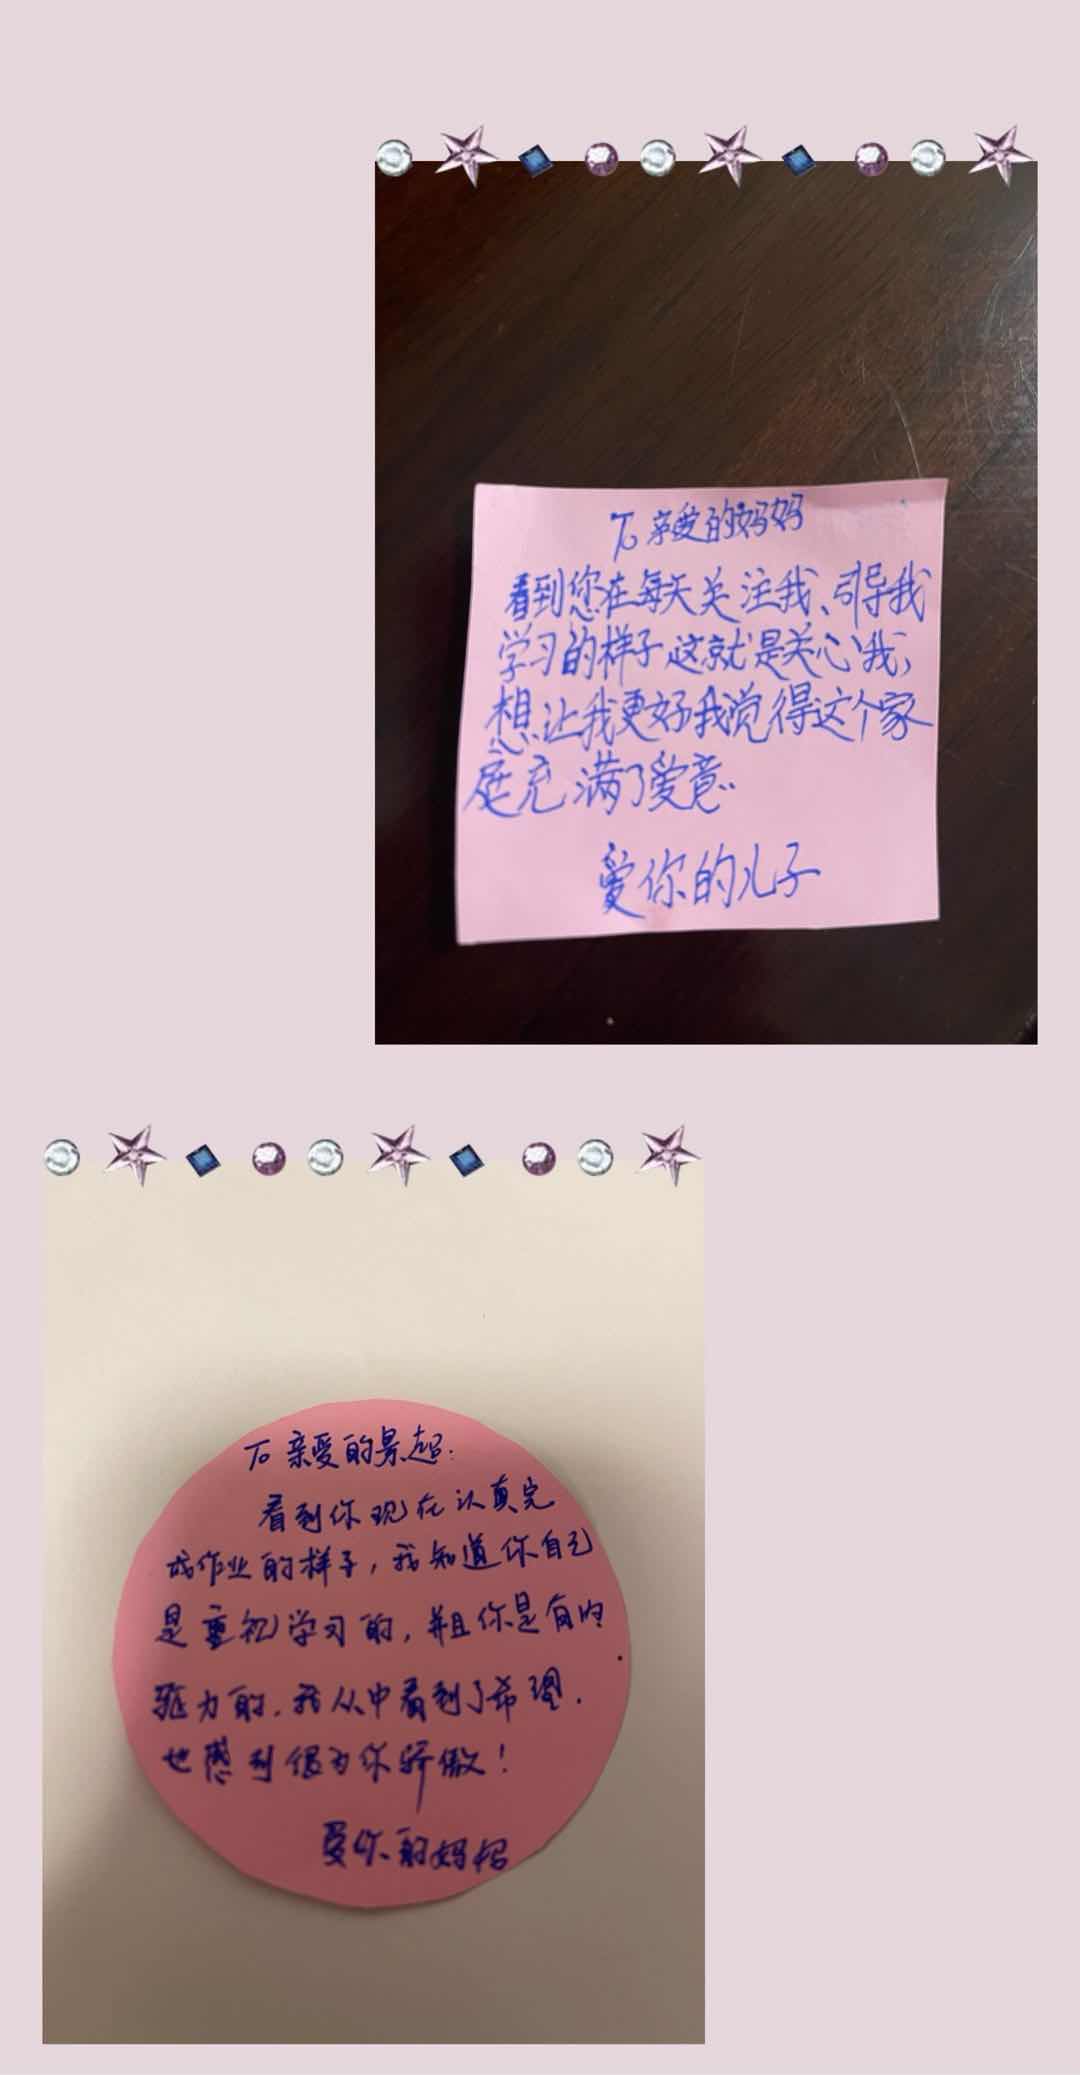 To 亲爱的妈妈
看到您在每天关注我、引导我
学习的样子这就是关心我，
想让我更好我觉得这个家
庭充满了爱意..
爱你的儿子
To 亲爱的景超：
看到你现在认真完
成作业的样子，我知道你自己
是重视学习的，并且你是有内
驱力的，我从中看到了希望，
也感到很为你骄傲！
爱你的妈妈